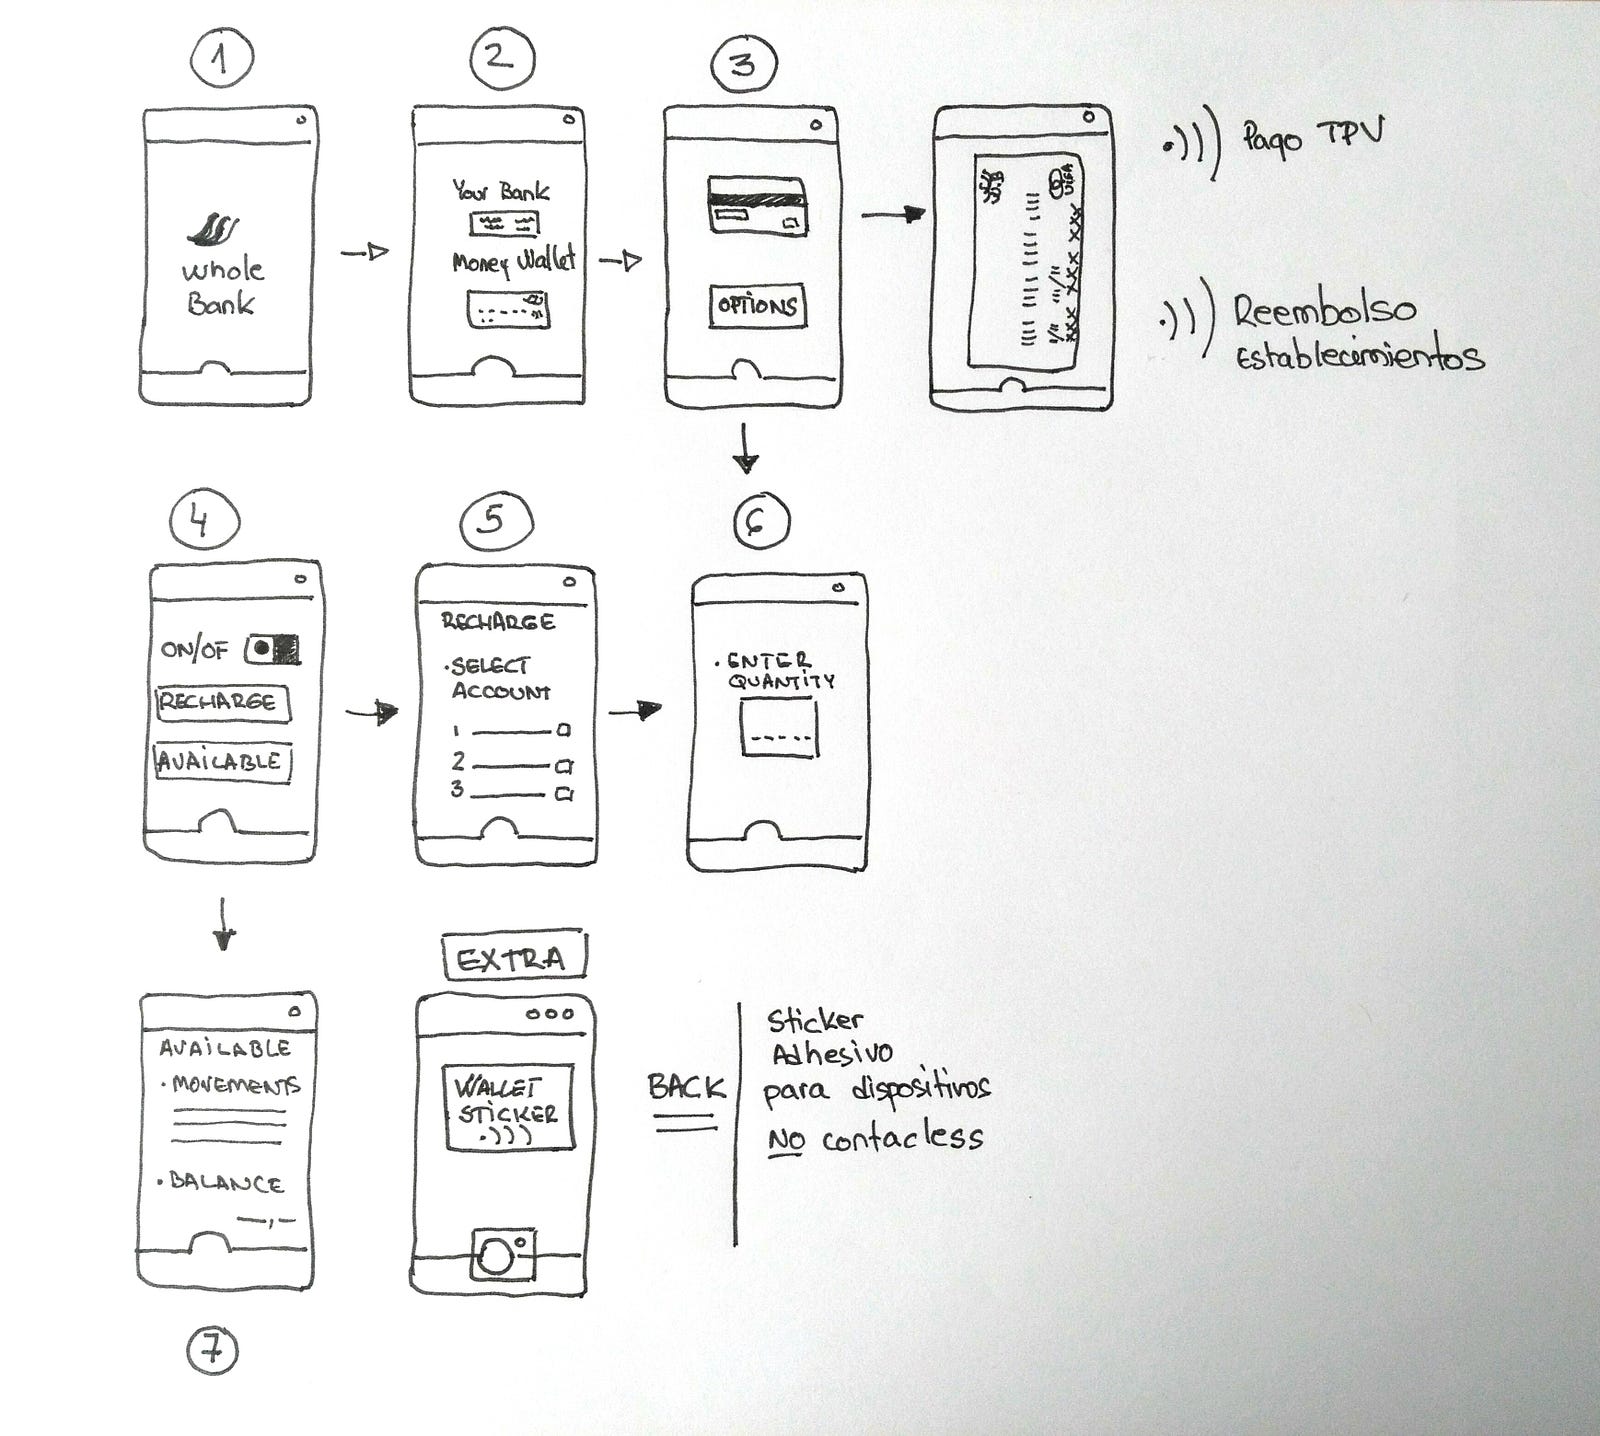 1
2
3
whole
Bank
Your Bank
Money Wallet
OPTIONS
VISA
XXX XXX XXX
Pago TPV
Reembolso
Establecimientos
4
5
6
ON/OF
RECHARGE
AVAILABLE
RECHARGE
·SELECT
ACCOUNT
1
2
3
·ENTER
QUANTITY
AVAILABLE
·MOVEMENTS
·BALANCE
7
EXTRA
WALLET
STICKER
BACK
Sticker
Adhesivo
para dispositivos
NO contacless